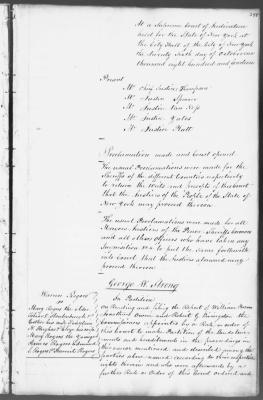 At a Supreme Court of Judicature
held for the State of New York at
the City Hall of the City of New York
the Twenty Sixth day of October one
thousand eight hundred and fourteen
Present
Mr Chief Justice Thompson
Mr Justice Spencer
Mr Justice Van Ness
Mr Justice Yates
Mr Justice Platt
Proclamation made and Court opened
The usual Proclamations were made for the
Sheriffs of the different Counties respectively
to return the Writs and precepts of this Court
that the Justices of the People of the State of
New York may proceed thereon
The usual Proclamations were made for all
Mayors Justices of the Peace Sheriffs Coroners
and all other Officers who have taken any
Inquisition &c to put the same forthwith
into Court that the Justices aforesaid may
proceed thereon
George W Strong
Warren Rogers
vs
Mary Rogers the elder
his wife
Mary Rogers the Younger
Rogers
In Partition
On Reading and filing the Report of William
and Robert the
Commissioners appointed by a Rule or order of
this Court to make Partition of the
and in the proceedings in
this cause mentioned and among the
parties above named according to their respective
rights therein and who were afterwards by a
further Rule or Order of this Court ordered and